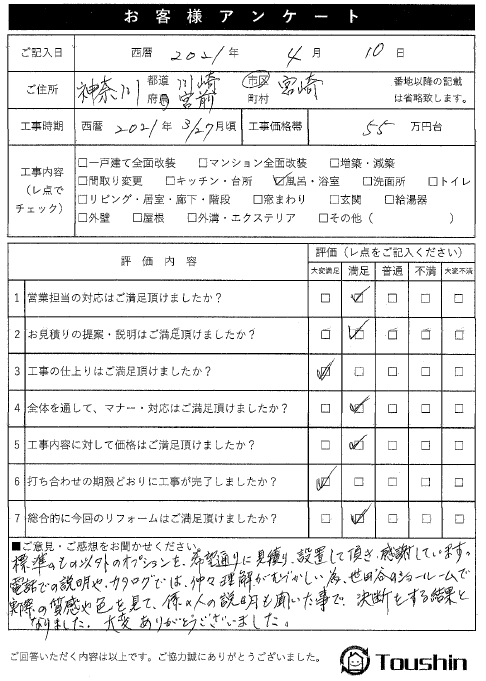 お客様アンケート
ご記入日 西暦 2021 年 4 月 10 日
ご住所 神奈川 都道府県 川崎 宮前 市区町村 宮崎 番地以降の記載は省略致します。
工事時期 西暦 2021 年 3/27 月頃 工事価格帯 55 万円台
工事内容（レ点でチェック）
□一戸建て全面改装 □マンション全面改装 □増築・減築
□間取り変更 □キッチン・台所 ☑風呂・浴室 □洗面所 □トイレ
□リビング・居室・廊下・階段 □窓まわり □玄関 □給湯器
□外壁 □屋根 □外溝・エクステリア □その他（ ）
評価内容 評価（レ点をご記入ください）
大変満足 満足 普通 不満 大変不満
1 営業担当の対応はご満足頂けましたか？ □ ☑ □ □ □
2 お見積りの提案・説明はご満足頂けましたか？ □ ☑ □ □ □
3 工事の仕上りはご満足頂けましたか？ ☑ □ □ □ □
4 全体を通して、マナー・対応はご満足頂けましたか？ □ ☑ □ □ □
5 工事内容に対して価格はご満足頂けましたか？ □ ☑ □ □ □
6 打ち合わせの期限どおりに工事が完了しましたか？ ☑ □ □ □ □
7 総合的に今回のリフォームはご満足頂けましたか？ □ ☑ □ □ □
■ご意見・ご感想をお聞かせください。
標準のもの以外のオプションを、希望通りに見積り、設置して頂き、感謝しています。
電話での説明や、カタログでは、仲々理解がむづかしい為、世田谷のショールームで
実際の質感や色を見て、係の人の説明も聞いた事で、決断をする結果と
なりました。大変ありがとうございました。
ご回答いただく内容は以上です。ご協力誠にありがとうございました。
Toushin